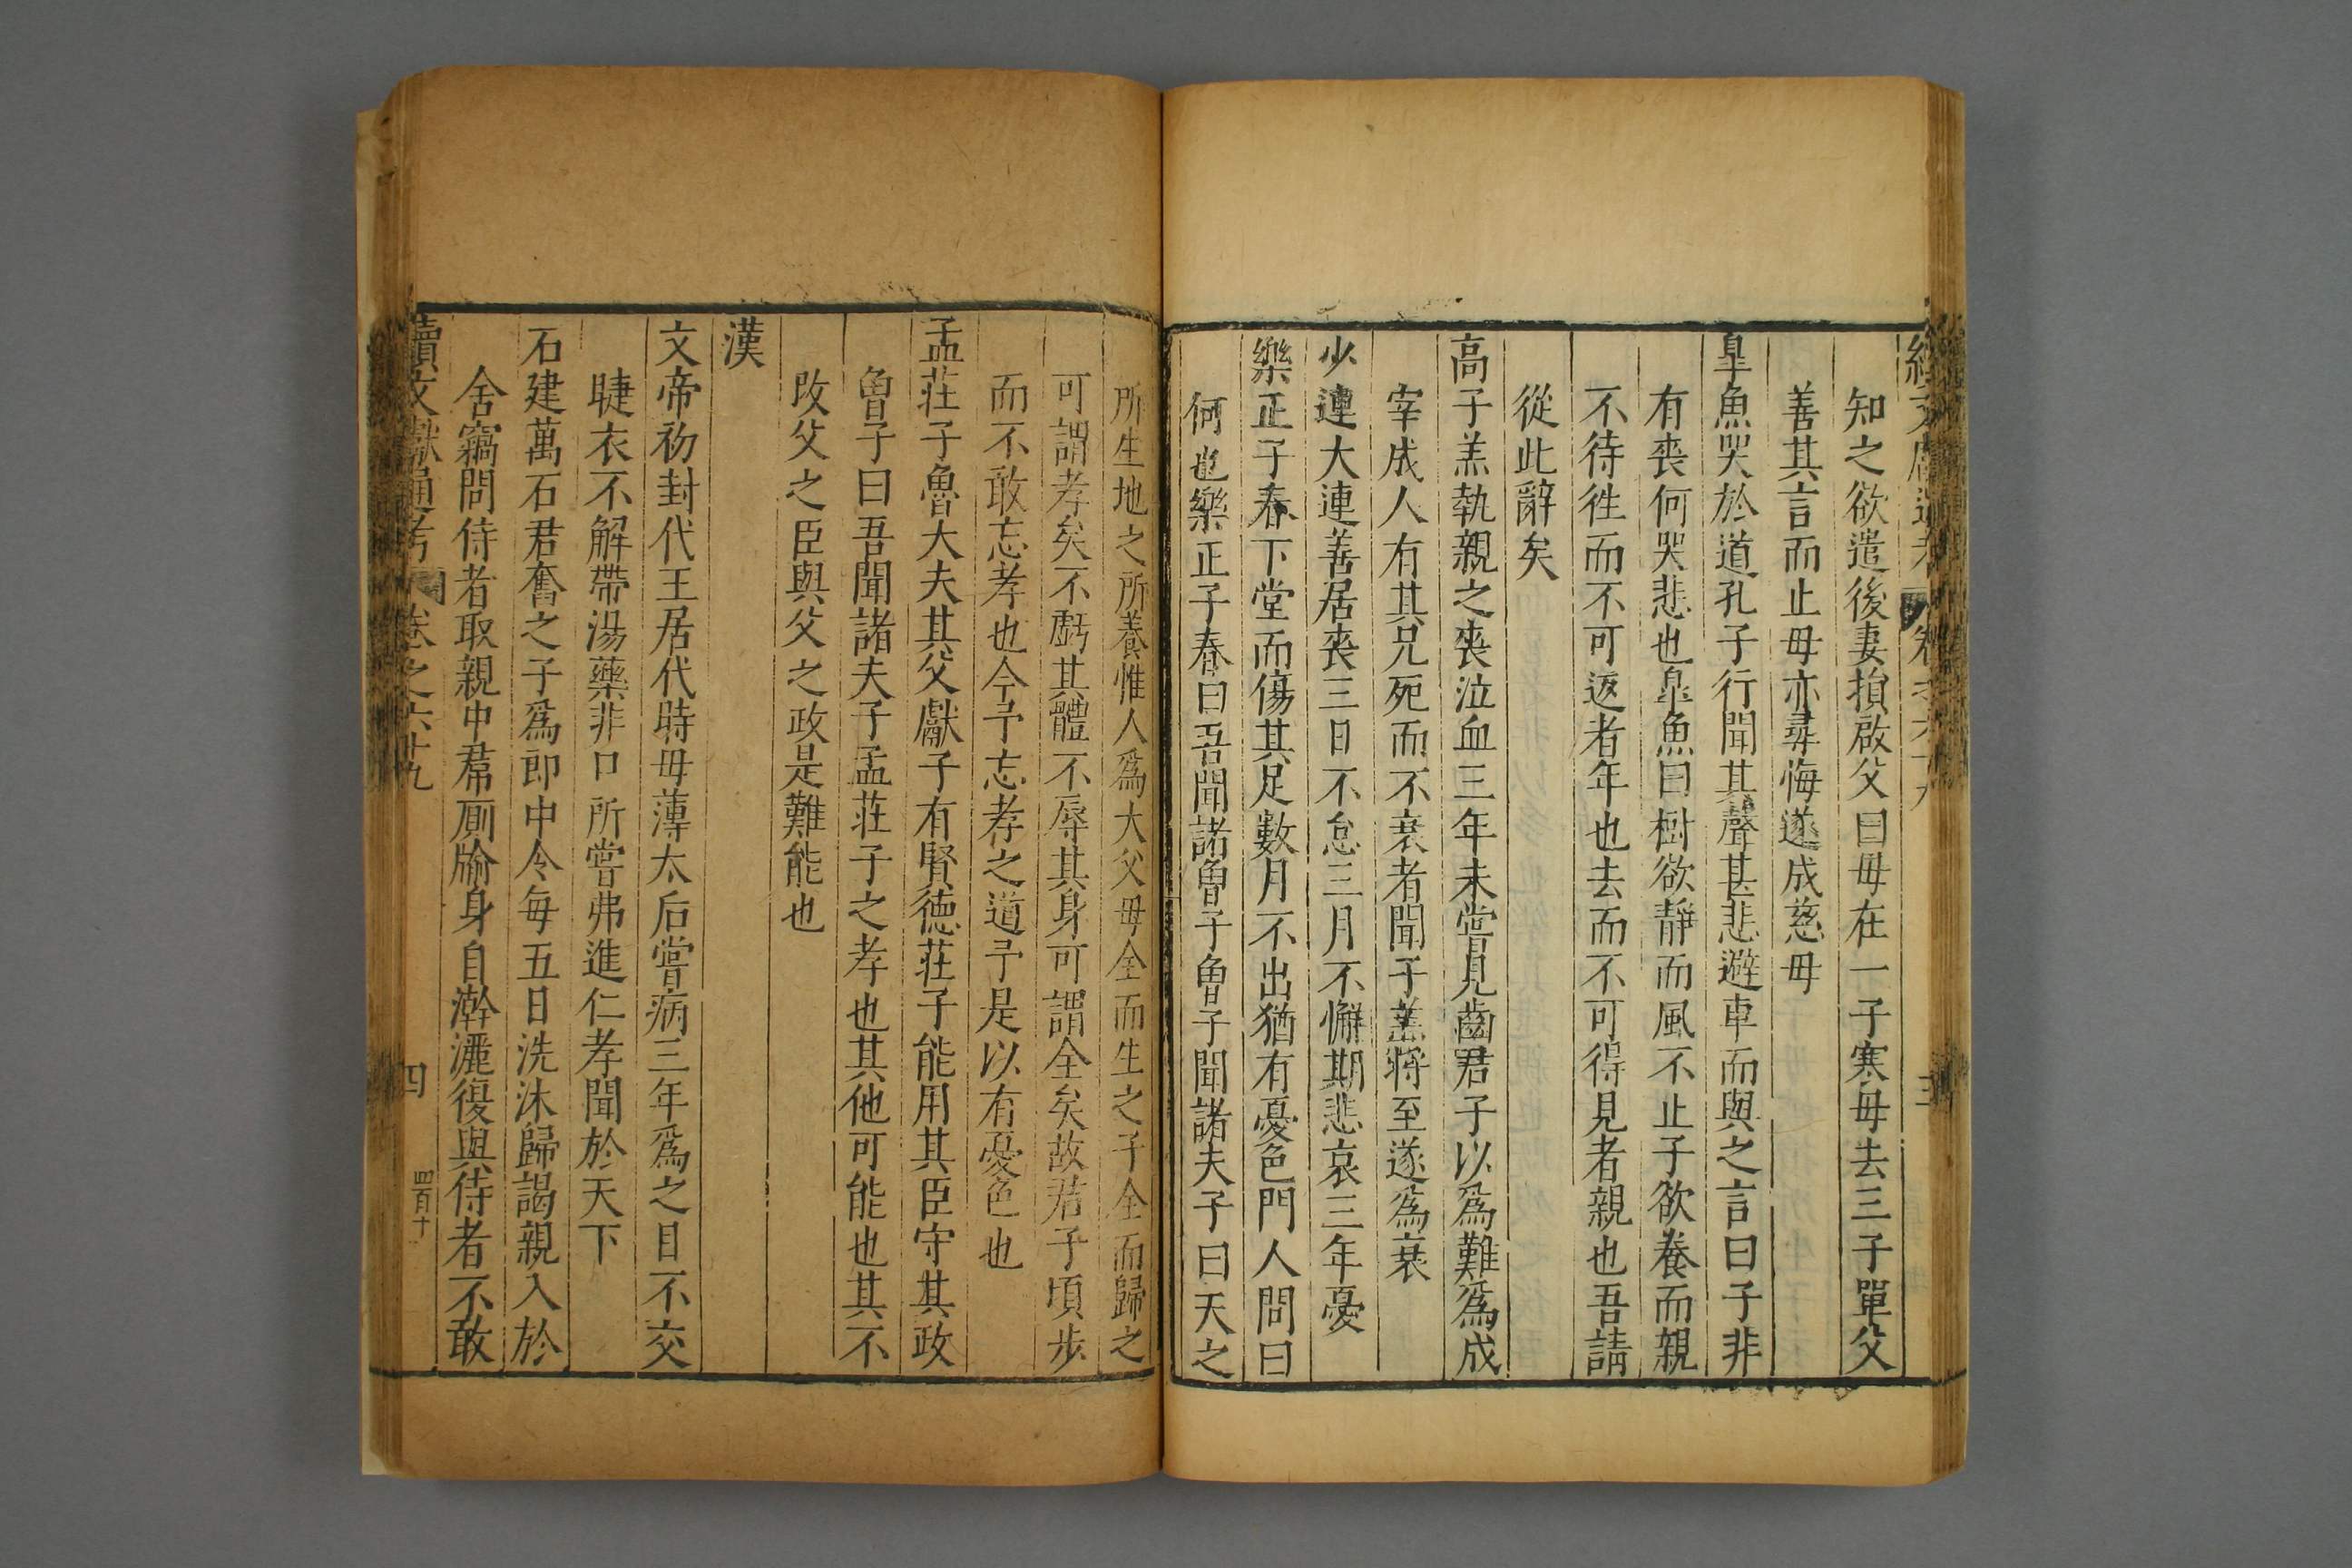 續文獻通考 卷之六十九 三
知之欲遣後妻損啟父曰毋在一子寒毋去三子單父
善其言而止毋亦尋悔遂成慈毋
臯魚哭於道孔子行聞其聲甚悲避車而與之言曰子非
有喪何哭悲也臯魚曰樹欲靜而風不止子欲養而親
不待徃而不可返者年也去而不可得見者親也吾請
從此辭矣
高子羔執親之喪泣血三年未嘗見齒君子以爲難爲成
宰成人有其兄死而不衰者聞子羔將至遂爲衰
少連大連善居喪三日不怠三月不懈期悲哀三年憂
樂正子春下堂而傷其足數月不出猶有憂色門人問曰
何也樂正子春曰吾聞諸曾子曾子聞諸夫子曰天之
所生地之所養惟人爲大父毋全而生之子全而歸之
可謂孝矣不虧其體不辱其身可謂全矣故君子頃步
而不敢忘孝也今予忘孝之道予是以有憂色也
孟荘子魯大夫其父獻子有賢德荘子能用其臣守其政
曾子曰吾聞諸夫子孟荘子之孝也其他可能也其不
改父之臣與父之政是難能也
漢
文帝初封代王居代時毋薄太后嘗病三年爲之目不交
睫衣不解帶湯藥非口所嘗弗進仁孝聞於天下
石建萬石君奮之子爲郎中令每五日洗沐歸謁親入於
舍竊問侍者取親中帬厠牏身自澣灑復與侍者不敢
續文獻通考 卷之六十九 四 四百十